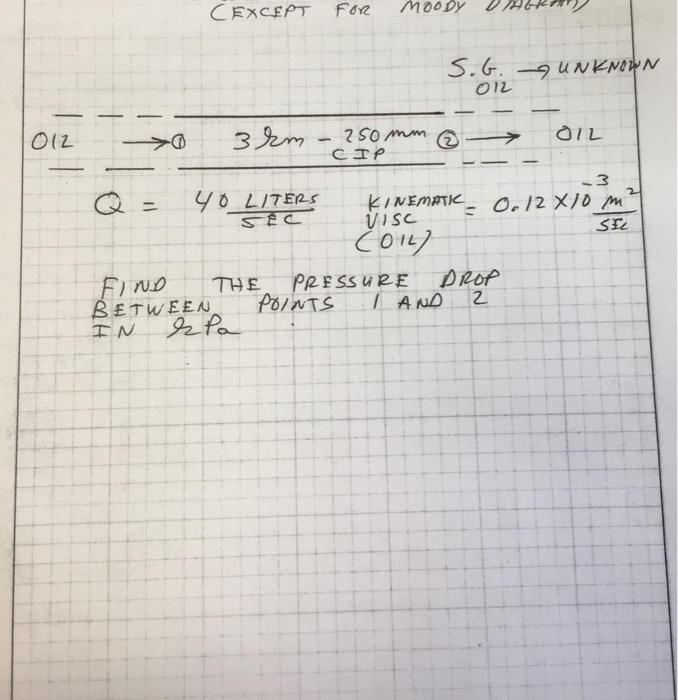 (EXCEPT FOR MOODY DIAGRAM)
S.G. → UNKNOWN
OIL
OIL → ① 3 km - 250 mm ② → OIL
CIP
Q = 40 LITERS/SEC KINEMATIC VISC (OIL) = 0.12 X10⁻³ m²/SEC
FIND THE PRESSURE DROP
BETWEEN POINTS 1 AND 2
IN kPa